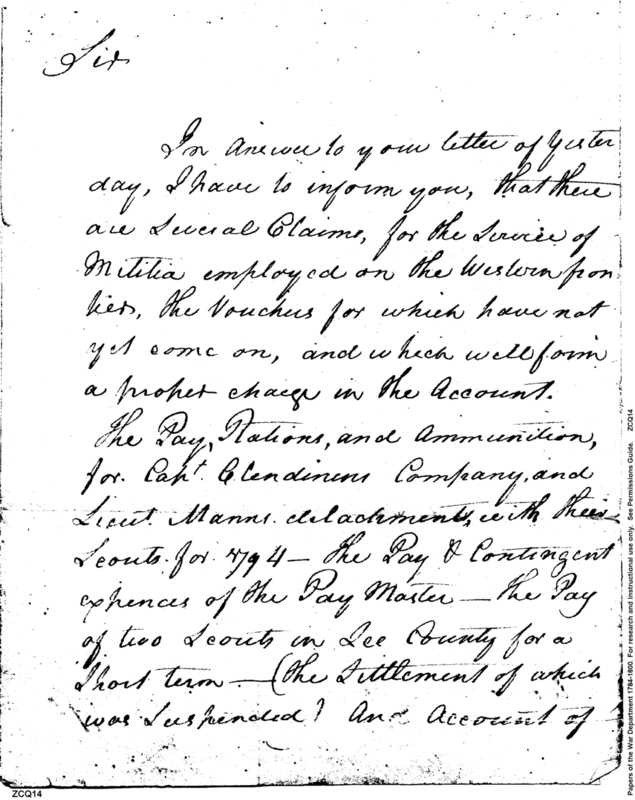 Sir
In Answer to your letter of Yester
day, I have to inform you, that there
are Several Claims, for the Service of
Militia employed on the Western fron
tiers, the Vouchers for which have not
yet come on, and which will form
a proper charge in the Account.
The Pay, Rations, and Ammunition,
for Capt. Clendinens Company, and
Lieut. Manns detachments, with their
Scouts for 1794 — The Pay & Contingent
expences of the Pay Master — The Pay
of two Scouts in Lee County for a
Short term — (the Settlement of which
was Suspended) An Account of
ZCQ14
Papers of the War Department 1784-1800. For research and Instructional use only. See Permissions Guide. ZCQ14